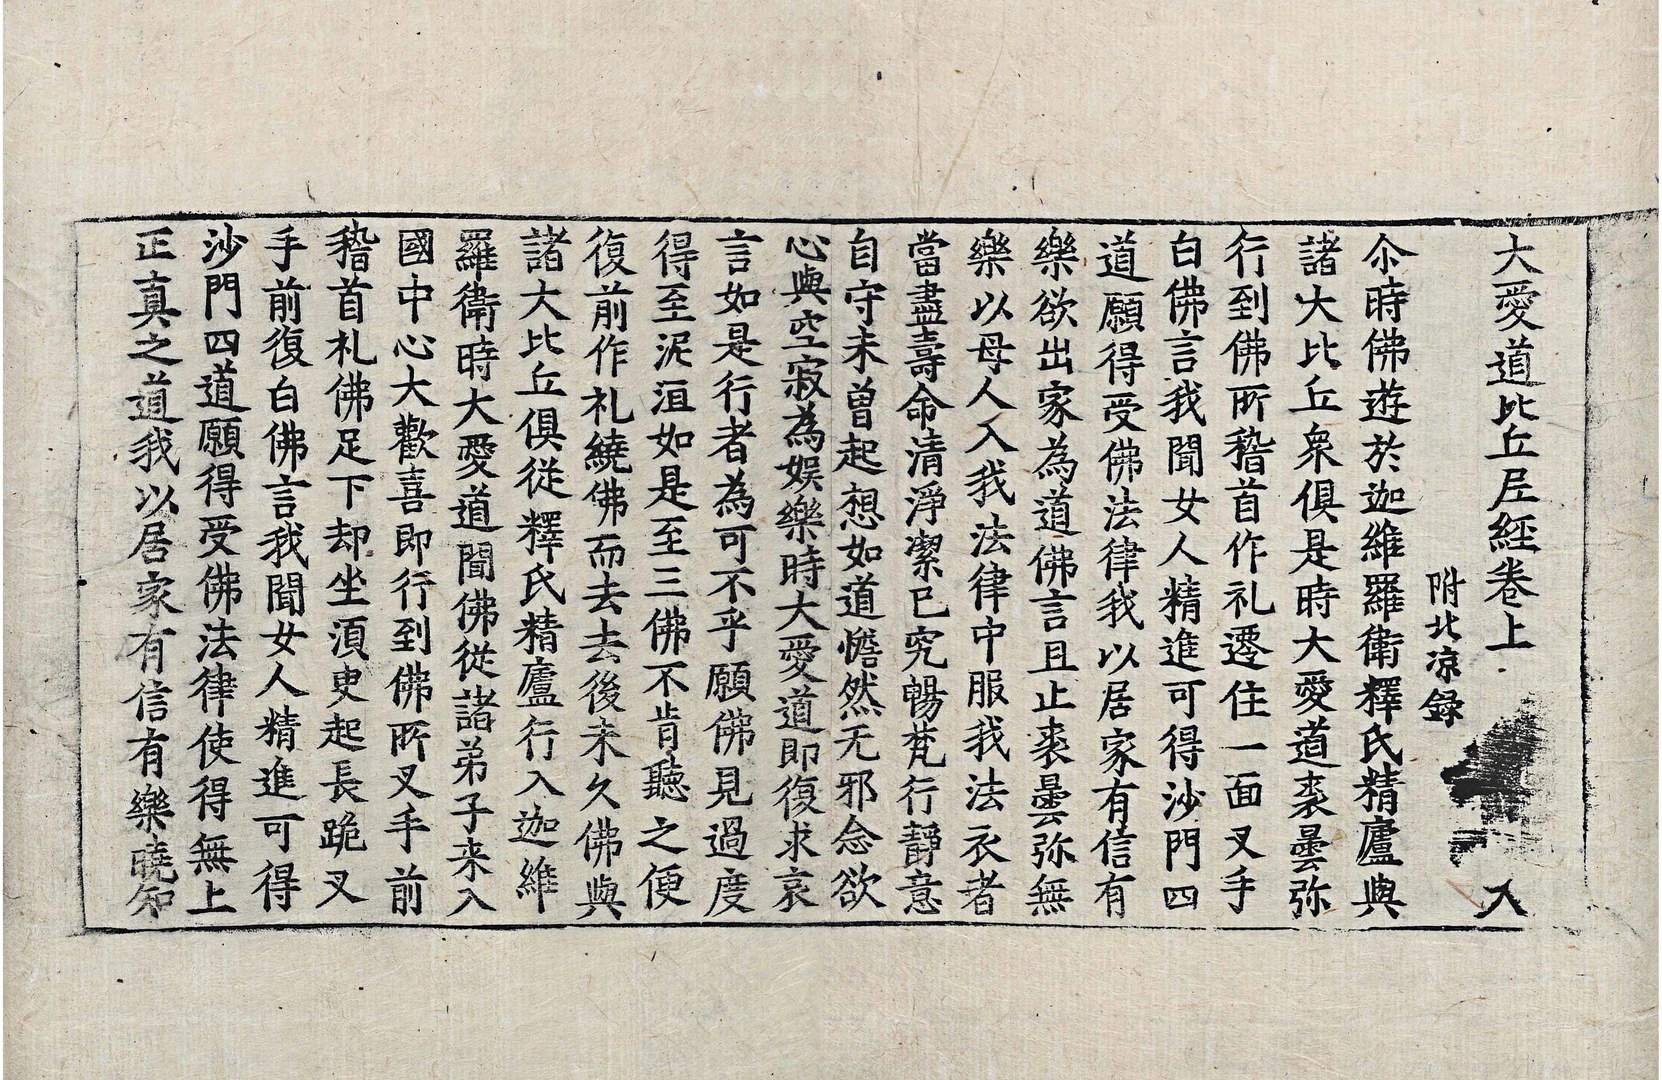 大愛道比丘尼經卷上 入
附北凉録
尒時佛遊於迦維羅衛釋氏精廬與
諸大比丘衆俱是時大愛道裘曇弥
行到佛所稽首作礼遷住一面叉手
白佛言我聞女人精進可得沙門四
道願得受佛法律我以居家有信有
樂欲出家為道佛言且止裘曇弥無
樂以母人入我法律中服我法衣者
當盡壽命清淨潔已究暢梵行靜意
自守未曾起想如道惔然无邪念欲
心與空寂為娱樂時大愛道即復求哀
言如是行者為可不乎願佛見過度
得至泥洹如是至三佛不肯聽之便
復前作礼繞佛而去去後未久佛與
諸大比丘俱從釋氏精廬行入迦維
羅衛時大愛道聞佛從諸弟子来入
國中心大歡喜即行到佛所叉手前
稽首礼佛足下却坐湏臾起長跪叉
手前復白佛言我聞女人精進可得
沙門四道願得受佛法律使得無上
正真之道我以居家有信有樂曉知